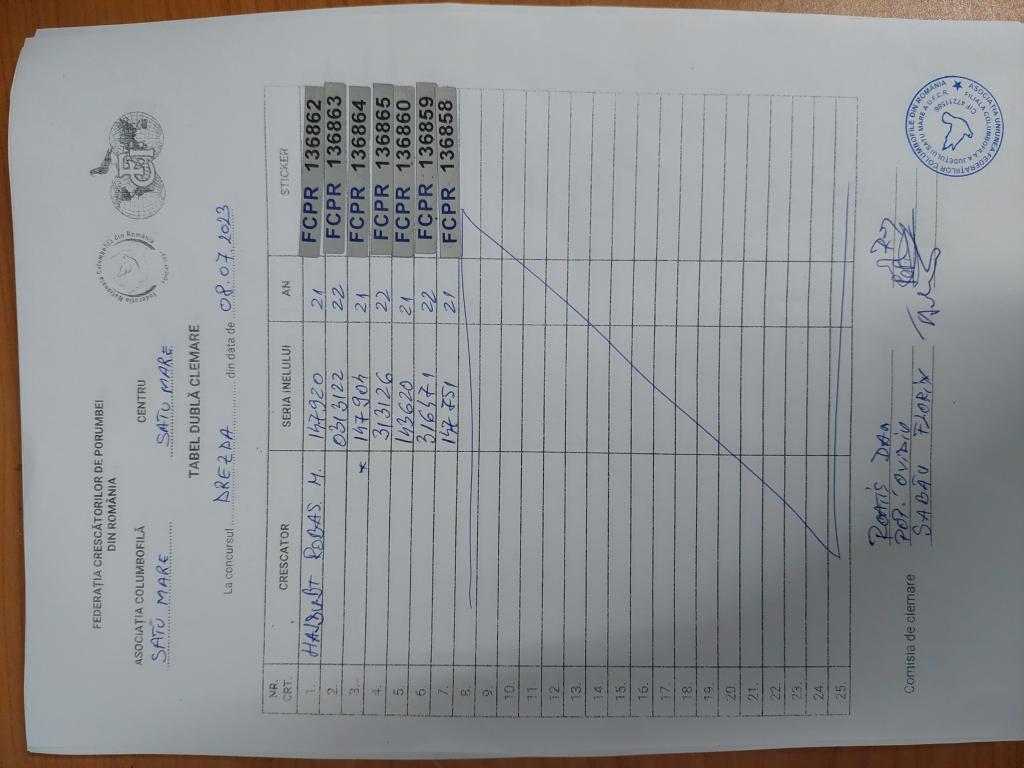 FEDERAȚIA CRESCĂTORILOR DE PORUMBEI
DIN ROMÂNIA
Federația Națională Columbofilă din România
ASOCIAȚIA COLUMBOFILĂ CENTRU
SATU MARE SATU MARE
TABEL DUBLĂ CLEMARE
La concursul DREZDA din data de 08.07.2023
NR. CRT. CRESCATOR SERIA INELULUI AN STICKER
1. HALBULT ROBAS M. 147920 21 FCPR 136862
2. 0313122 22 FCPR 136863
3. * 147904 21 FCPR 136864
4. 313126 22 FCPR 136865
5 143620 21 FCPR 136860
6. 316671 22 FCPR 136859
7. 147751 21 FCPR 136858
8.
9.
10.
11
12
13.
14
15.
16.
17.
18.
19.
20.
21.
22.
23.
24
25.
Comisia de clemare
DAN
POP OVIDIU
SABĂU FLORIN
ASOCIAȚIA UNIUNEA FEDERAȚIILOR COLUMBOFILE DIN ROMÂNIA
FILIALA COLUMBOFILĂ A JUDEȚULUI SATU MARE A U.F.C.R.
CIF 47211586